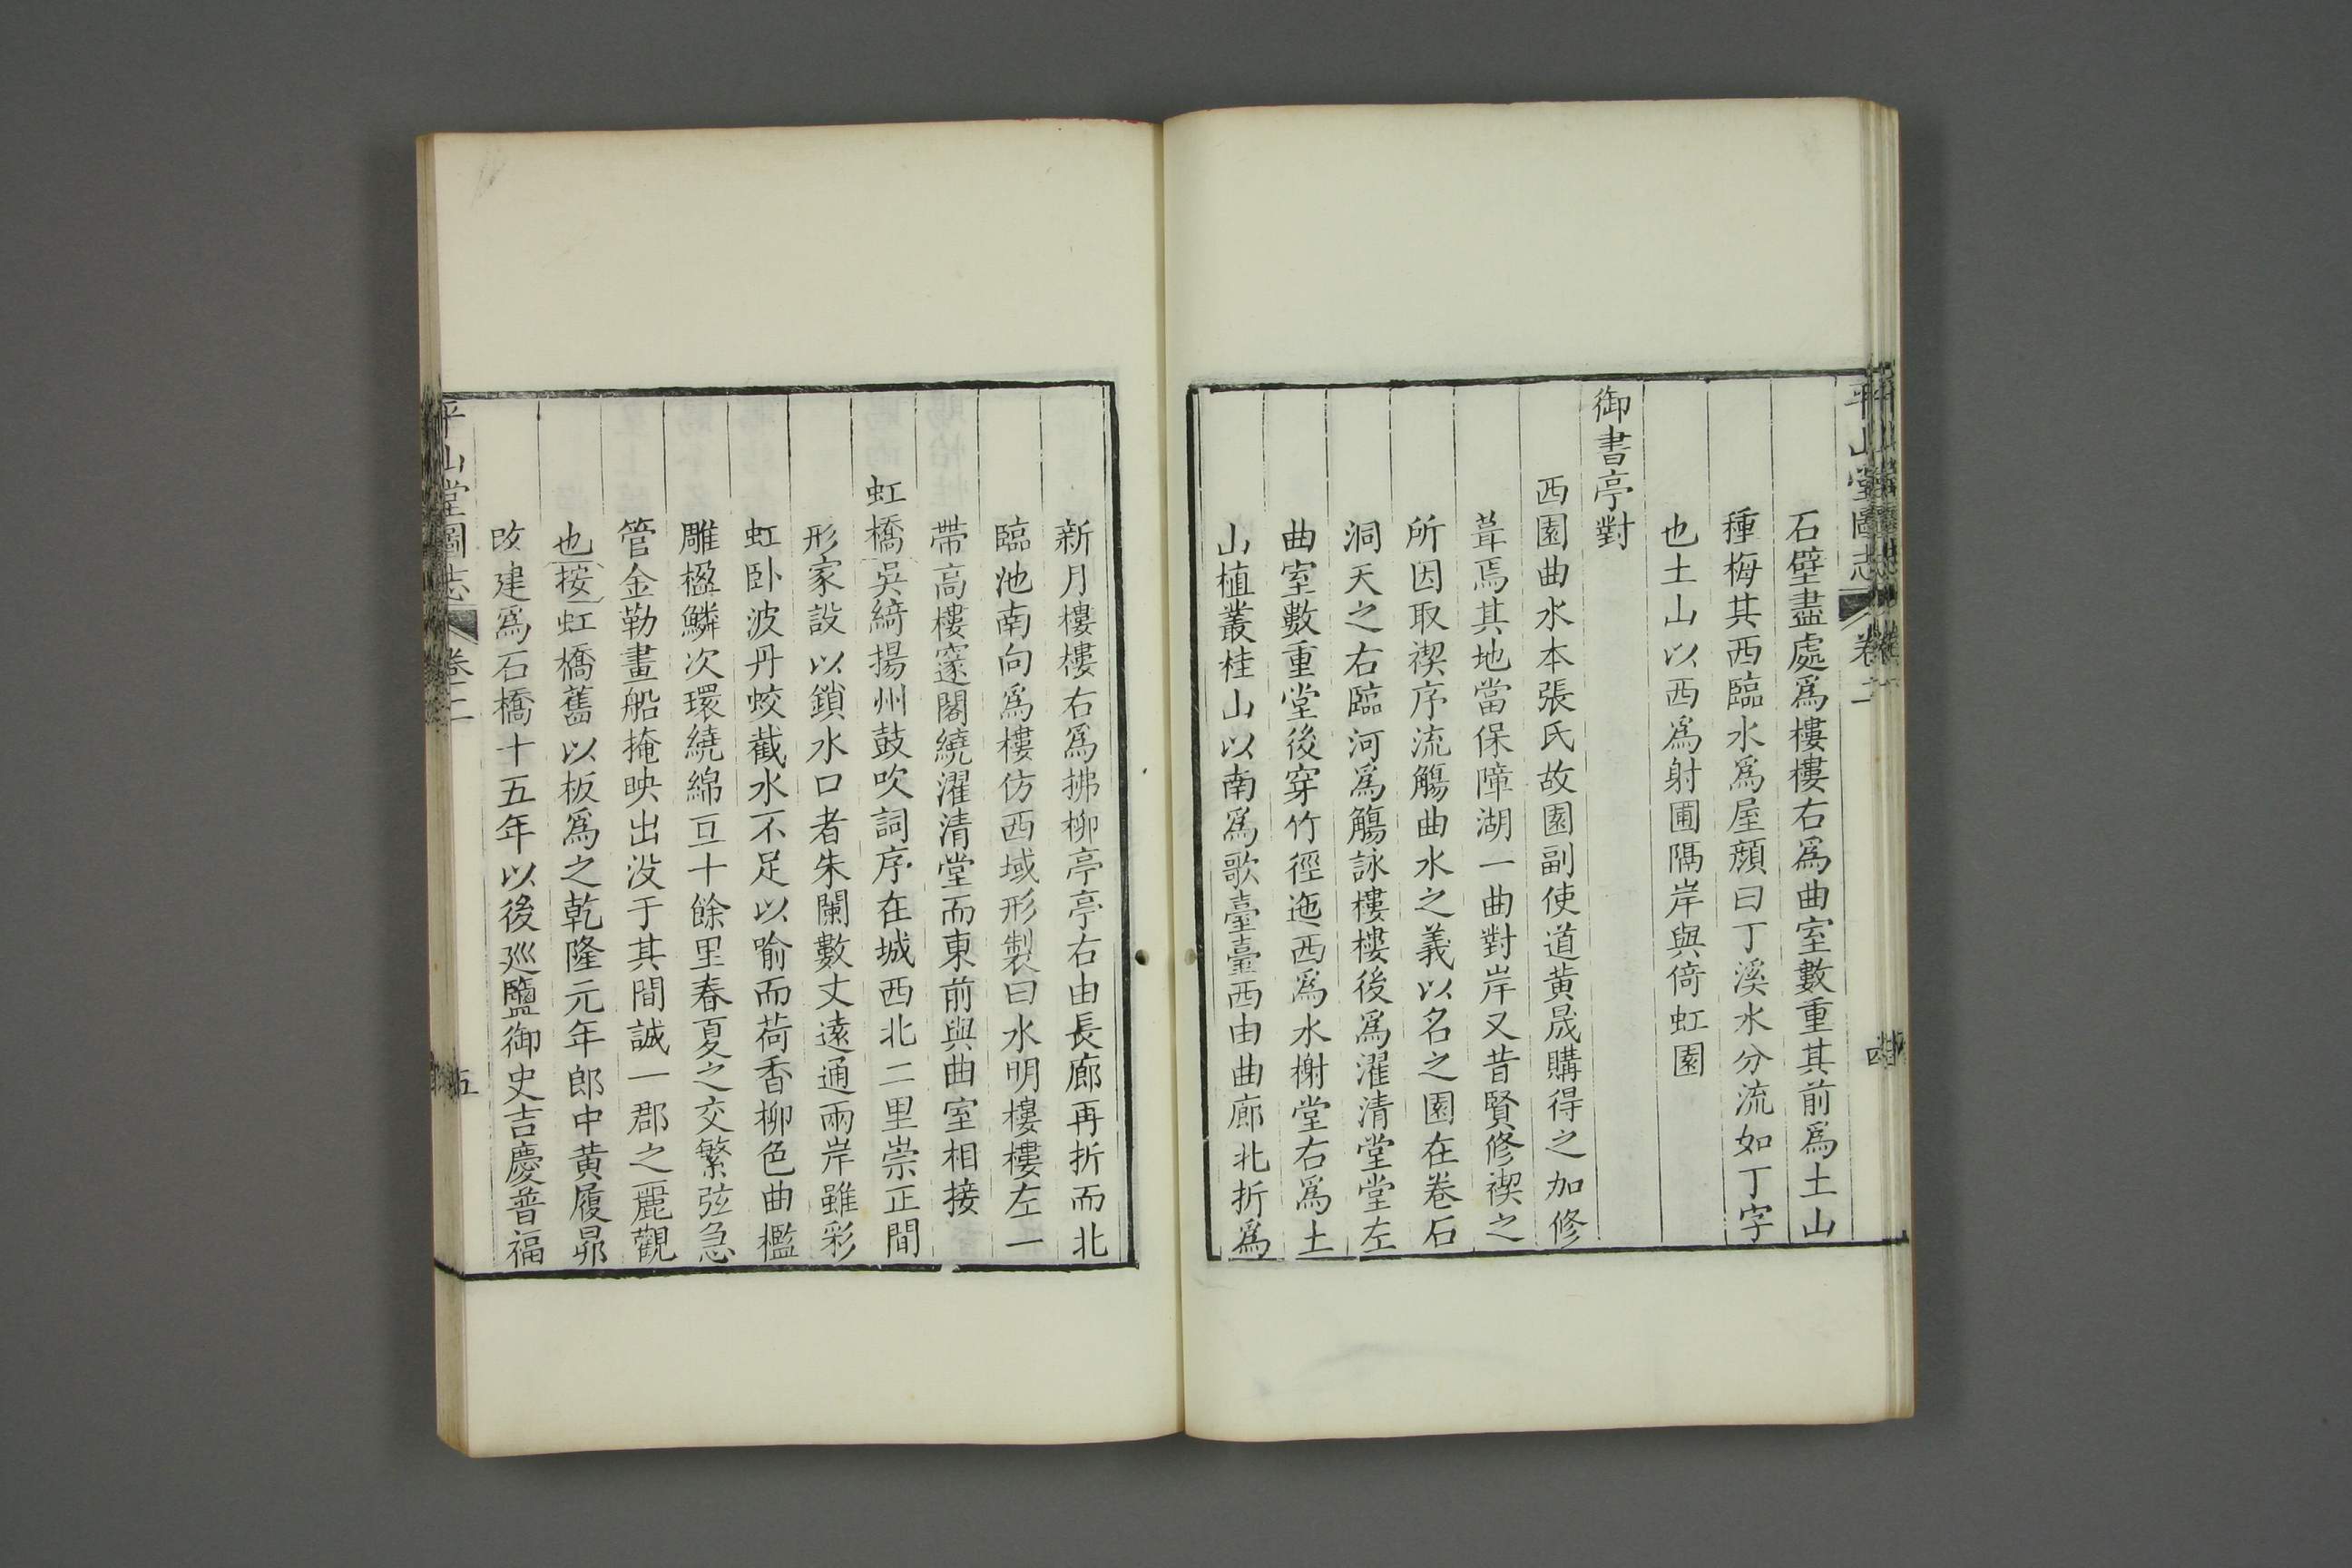 平山堂圖志 卷二 四
石壁盡處爲樓樓右爲曲室數重其前爲土山
種梅其西臨水爲屋顔曰丁溪水分流如丁字
也土山以西爲射圃隔岸與倚虹園
御書亭對
西園曲水本張氏故園副使道黄晟購得之加修
葺焉其地當保障湖一曲對岸又昔賢修禊之
所因取禊序流觴曲水之義以名之園在卷石
洞天之右臨河爲觴詠樓樓後爲濯清堂堂左
曲室數重堂後穿竹徑迤西爲水榭堂右爲土
山植叢桂山以南爲歌臺臺西由曲廊北折爲
新月樓樓右爲拂柳亭亭右由長廊再折而北
臨池南向爲樓仿西域形製曰水明樓樓左一
帶高樓邃閣繞濯清堂而東前與曲室相接
虹橋吳綺揚州鼓吹詞序在城西北二里崇正間
形家設以鎖水口者朱闌數丈遠通兩岸雖彩
虹卧波丹蛟截水不足以喻而荷香柳色曲檻
雕楹鱗次環繞綿亘十餘里春夏之交繁弦急
管金勒畫船掩映出没于其間誠一郡之麗觀
也按虹橋舊以板爲之乾隆元年郎中黄履昴
改建爲石橋十五年以後巡鹽御史吉慶普福
平山堂圖志 卷二 五